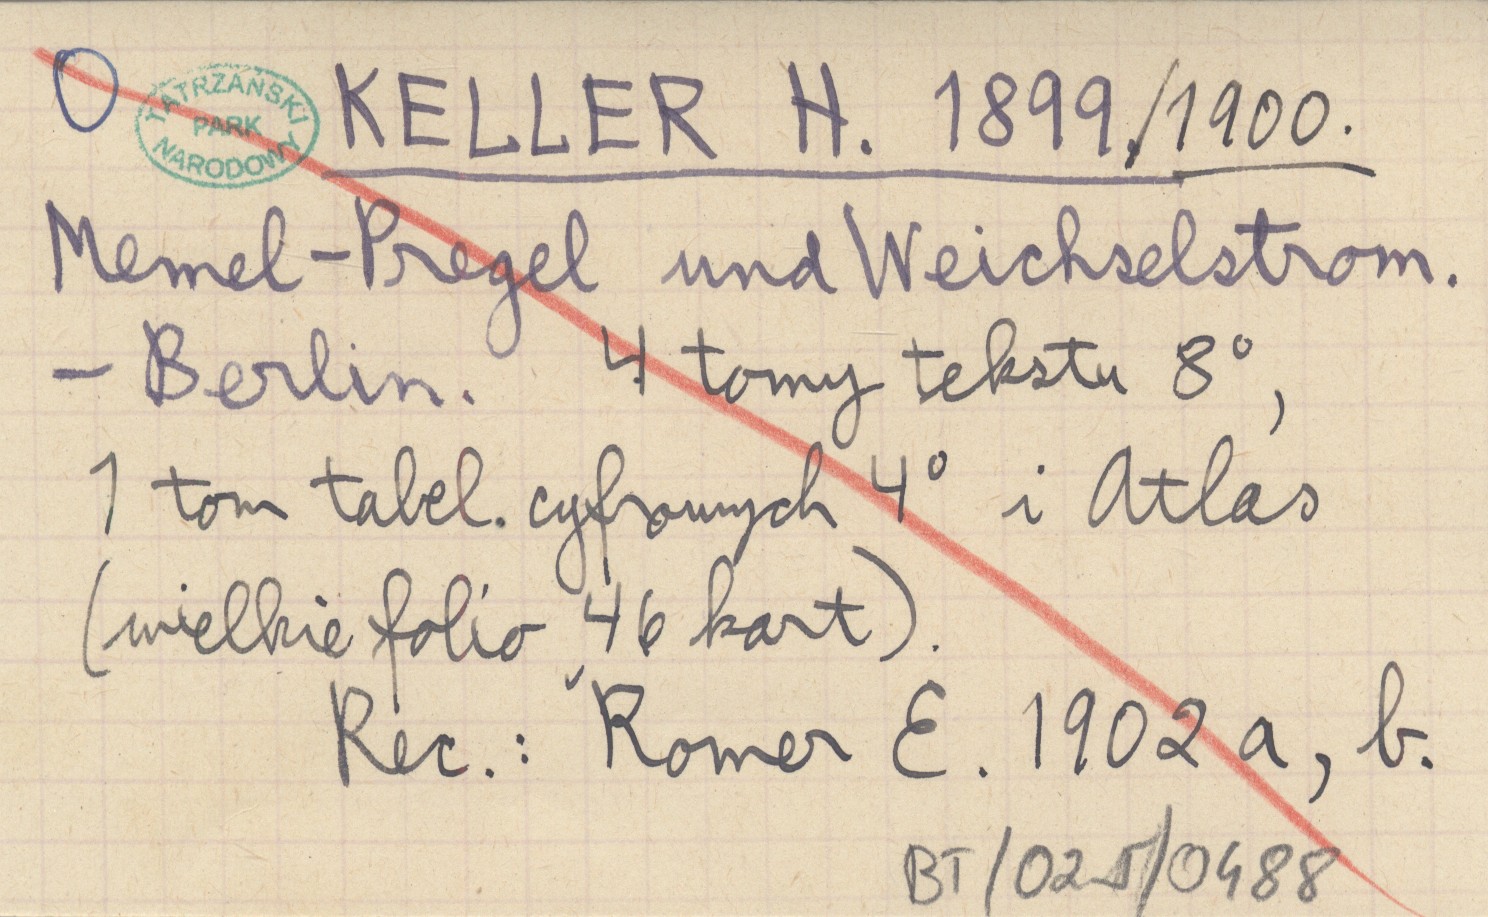 O TATRZAŃSKI PARK NARODOWY KELLER H. 1899./1900.
Memel-Pregel und Weichselstrom.
- Berlin. 4 tomy tekstu 8°,
1 tom tabel. cyfrowych 4° i Atlas
(wielkie folio, 46 kart).
Rec.: Romer E. 1902 a, b.
BT/025/0488